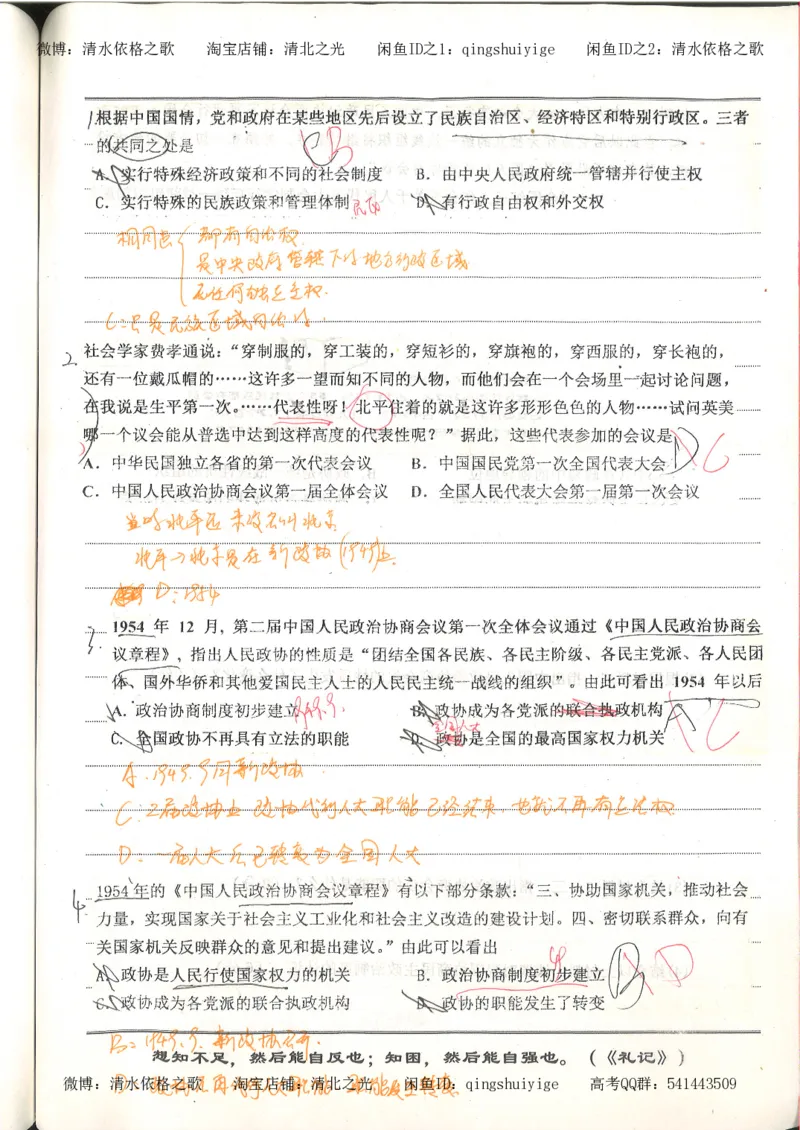 微博：清水依格之歌 淘宝店铺：清北之光 闲鱼ID之1：qingshuiyige 闲鱼ID之2：清水依格之歌
1根据中国国情，党和政府在某些地区先后设立了民族自治区、经济特区和特别行政区。三者
的共同之处是
B
A. 实行特殊经济政策和不同的社会制度 B. 由中央人民政府统一管辖并行使主权
C. 实行特殊的民族政策和管理体制 D. 有行政自由权和外交权
相同点 都有自治权
是中央政府管辖下的地方行政区域
无任何独立主权.
C:只是民族区域自治的
2 社会学家费孝通说：“穿制服的，穿工装的，穿短衫的，穿旗袍的，穿西服的，穿长袍的，
还有一位戴瓜帽的……这许多一望而知不同的人物，而他们会在一个会场里一起讨论问题，
在我说是生平第一次。……代表性呀！北平住着的就是这许多形形色色的人物……试问英美
哪一个议会能从普选中达到这样高度的代表性呢？”据此，这些代表参加的会议是
D C
A. 中华民国独立各省的第一次代表会议 B. 中国国民党第一次全国代表大会
C. 中国人民政治协商会议第一届全体会议 D. 全国人民代表大会第一届第一次会议
当时北平还未改名叫北京
北平→北京是在新政协(1949)上
D：1954
3. 1954 年 12 月，第二届中国人民政治协商会议第一次全体会议通过《中国人民政治协商会
议章程》，指出人民政协的性质是“团结全国各民族、各民主阶级、各民主党派、各人民团
体、国外华侨和其他爱国民主人士的人民民主统一战线的组织”。由此可看出 1954 年以后
A. 政治协商制度初步建立 1949.9. B. 政协成为各党派的联合执政机构 A C
全国人大
C. 全国政协不再具有立法的职能 D. 政协是全国的最高国家权力机关
A.1949.9月新政协
C.2届政协上 政协代行人大职能已经结束 也就不再有立法权
D. 一届人大后已转变为全国人大
4 1954 年的《中国人民政治协商会议章程》有以下部分条款：“三、协助国家机关，推动社会
力量，实现国家关于社会主义工业化和社会主义改造的建设计划。四、密切联系群众，向有
关国家机关反映群众的意见和提出建议。”由此可以看出
A. 政协是人民行使国家权力的机关 B. 政治协商制度初步建立 B D
C. 政协成为各党派的联合执政机构 D. 政协的职能发生了转变
B：1949.9.新政协召开.
想知不足，然后能自反也；知困，然后能自强也。（《礼记》）
微博：清水依格之歌 淘宝店铺：清北之光 闲鱼ID：qingshuiyige 高考QQ群：541443509